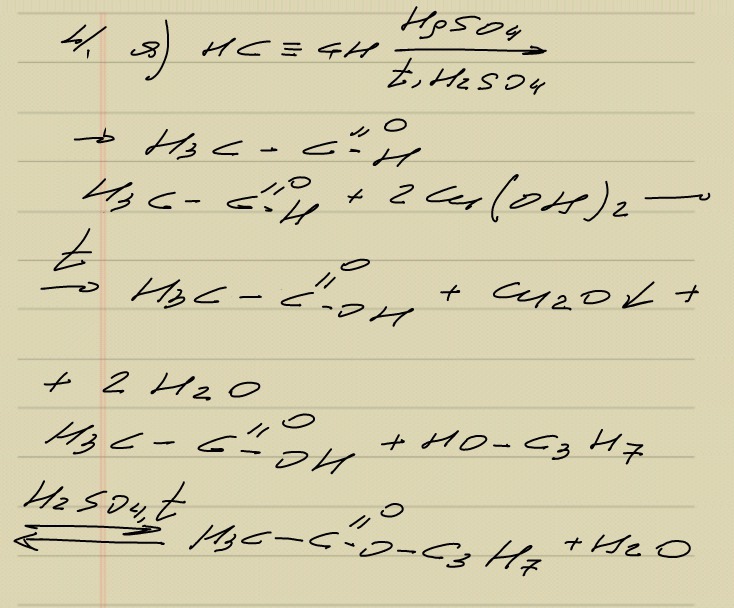 4. а) HC ≡ CH HgSO4
t, H2SO4
→ H3C - C =O -H
H3C - C =O -H + 2Cu(OH)2 →
t → H3C - C =O -OH + Cu2O↓ +
+ 2H2O
H3C - C =O -OH + HO-C3H7
H2SO4, t ⇄ H3C-C =O -O-C3H7 + H2O